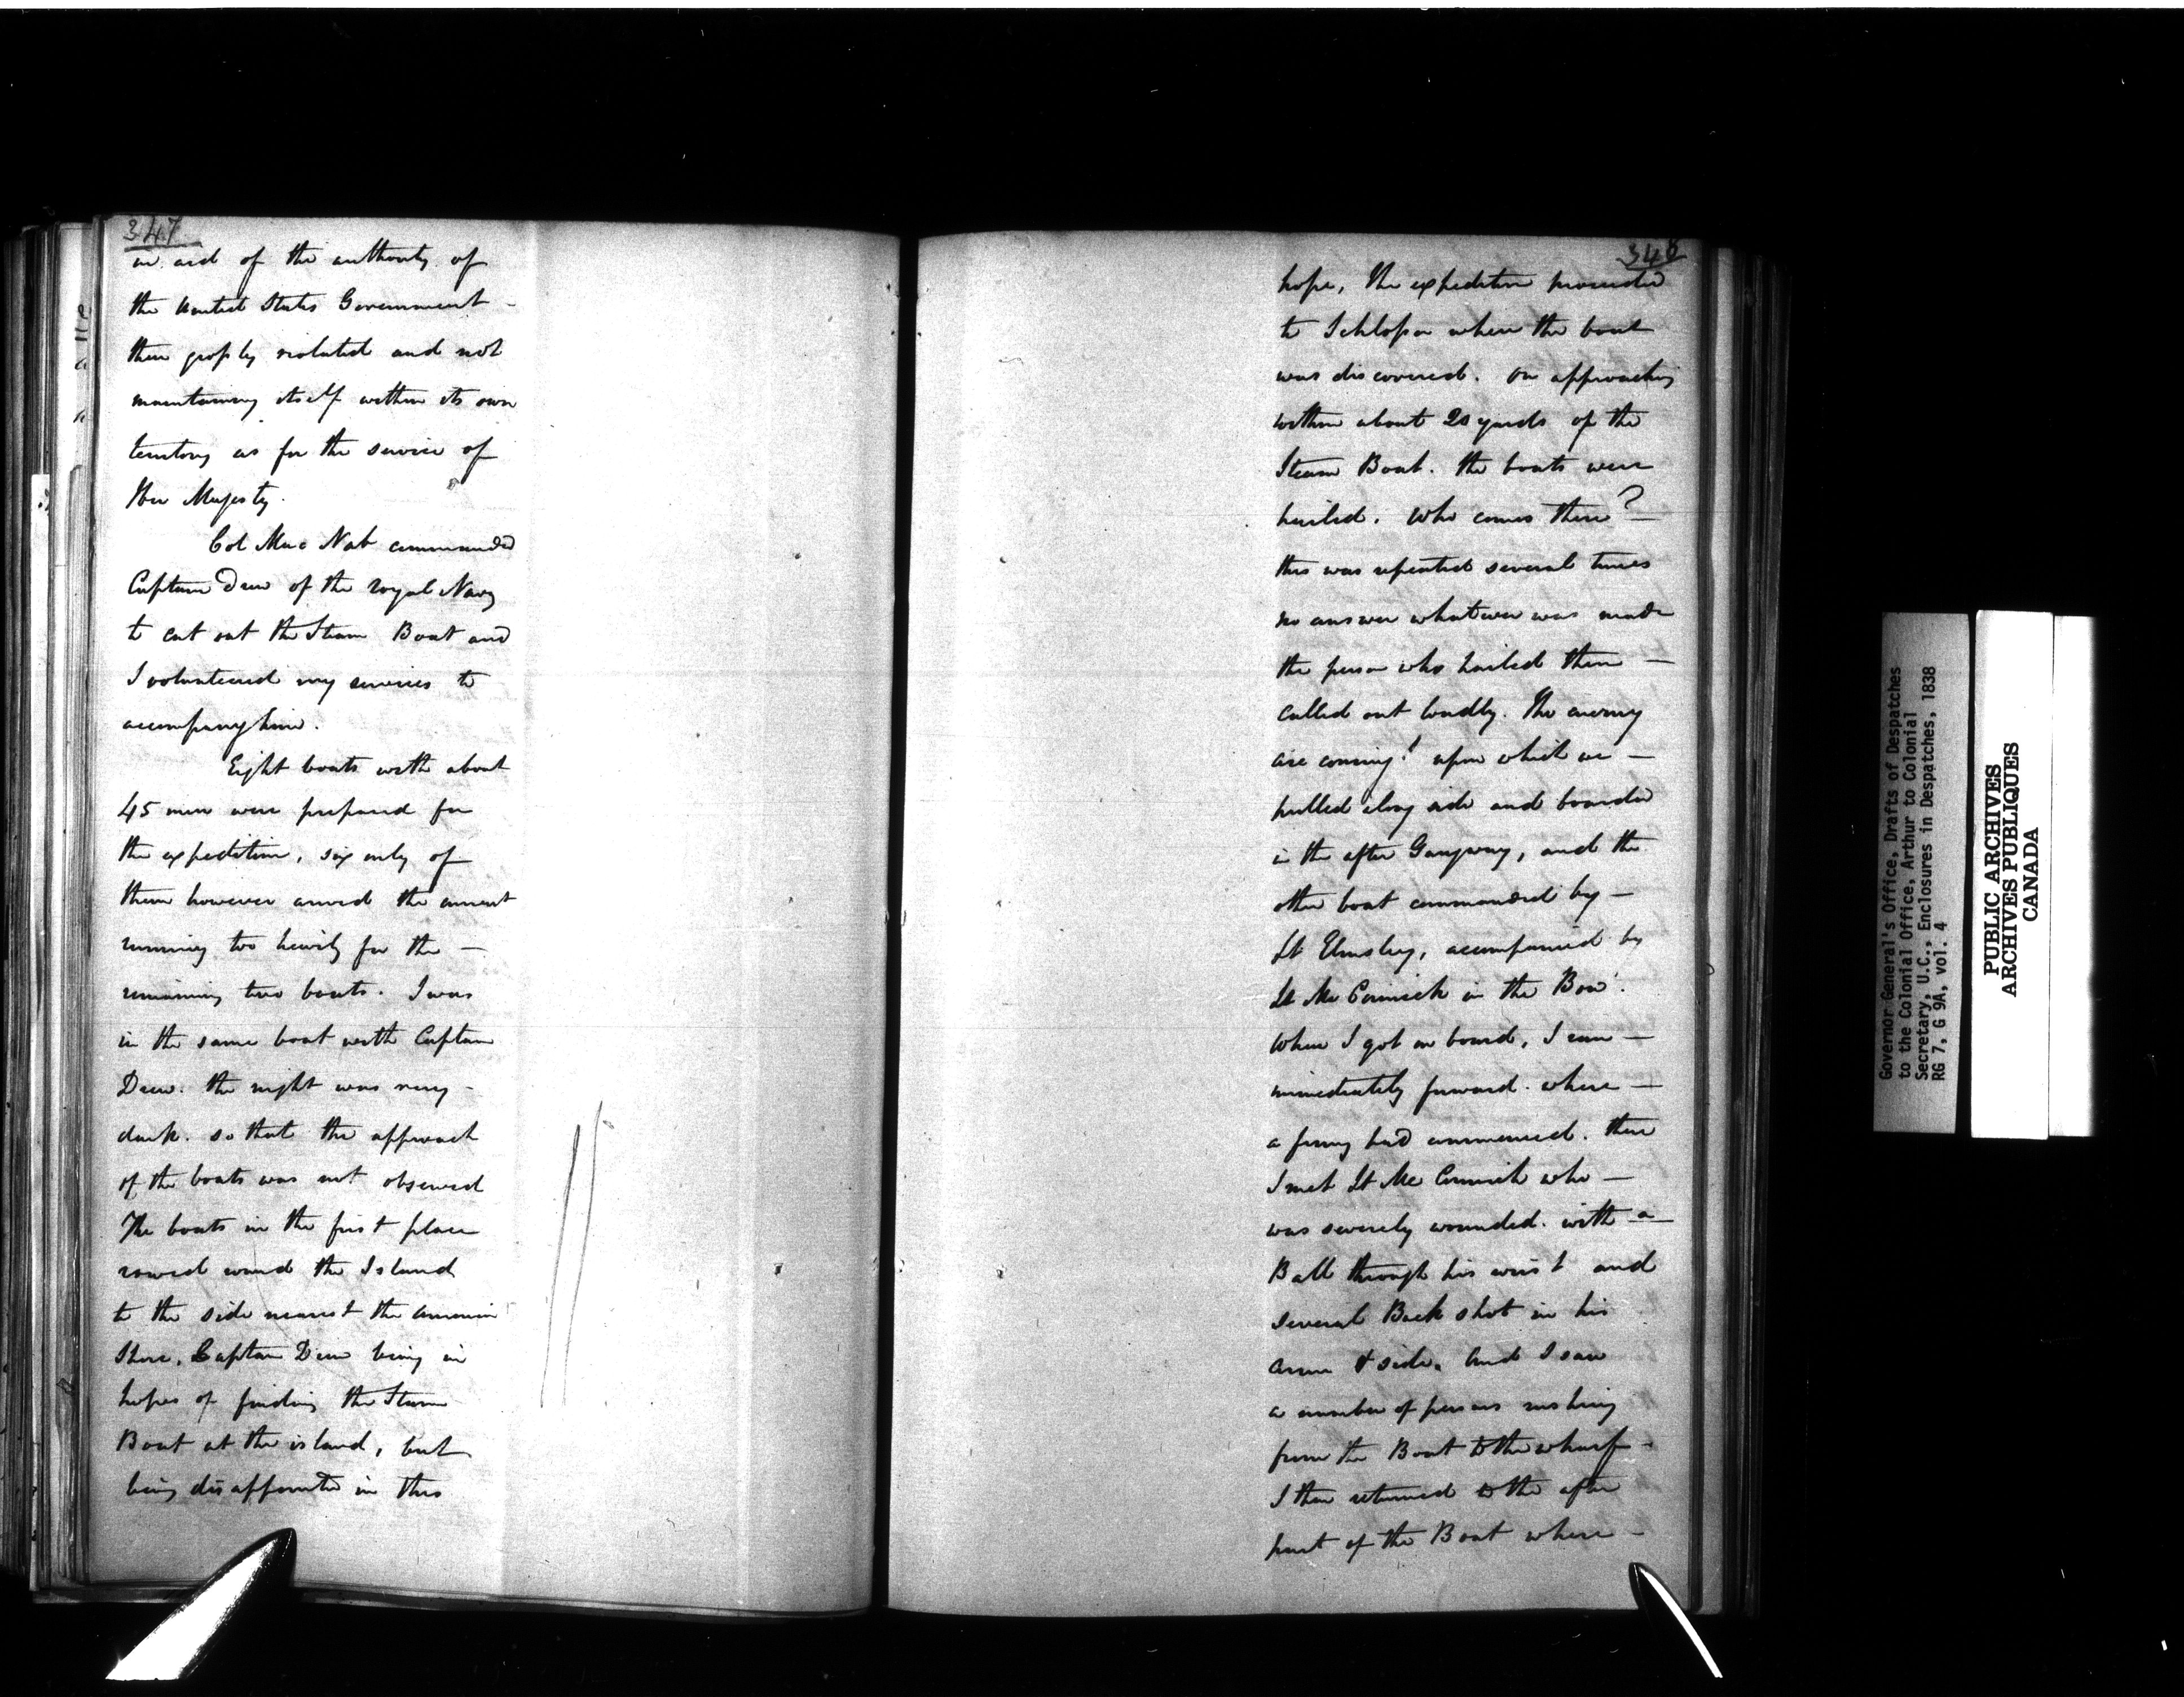 347
in aid of the authority of
the United States Government -
then grossly violated and not
maintaining itself within its own
territory as for the service of
Her Majesty.
Col Mac Nab commanded
Captain Drew of the royal Navy
to cut out the Steam Boat and
I volunteered my services to
accompany him.
Eight boats with about
45 men were prepared for
the expedition, six only of
them however arrived the current
running too heavily for the —
remaining two boats. I was
in the same boat with Captain
Drew. the night was very -
dark. so that the approach
of the boats was not observed
The boats in the first place
rowed round the Island
to the side nearest the American
Shore, Captain Drew being in
hopes of finding the Steam
Boat at the island, but
being disappointed in this
348
hope, the expedition proceeded
to Schlosser where the boat
was discovered. On approaching
within about 20 yards of the
Steam Boat. the boats were
hailed. Who comes there? —
this was repeated several times
no answer whatever was made
the person who hailed them —
called out loudly. The enemy
are coming! upon which we —
pulled along side and boarded
in the after Gangway, and the
other boat commanded by —
Lt Elmsley, accompanied by
Lt Mc Cormick in the Bow.
When I got on board, I ran —
immediately forward. where —
a firing had commenced. there
I met Lt Mc Cormick who —
was severely wounded. with a —
Ball through his wrist and
several Buck shot in his
arm & side. And I saw
a number of persons rushing
from the Boat to the wharf -
I then returned to the after
part of the Boat where -
Governor General's Office, Drafts of Despatches
to the Colonial Office, Arthur to Colonial
Secretary, U.C., Enclosures in Despatches, 1838
RG 7, G 9A, vol. 4
PUBLIC ARCHIVES
ARCHIVES PUBLIQUES
CANADA